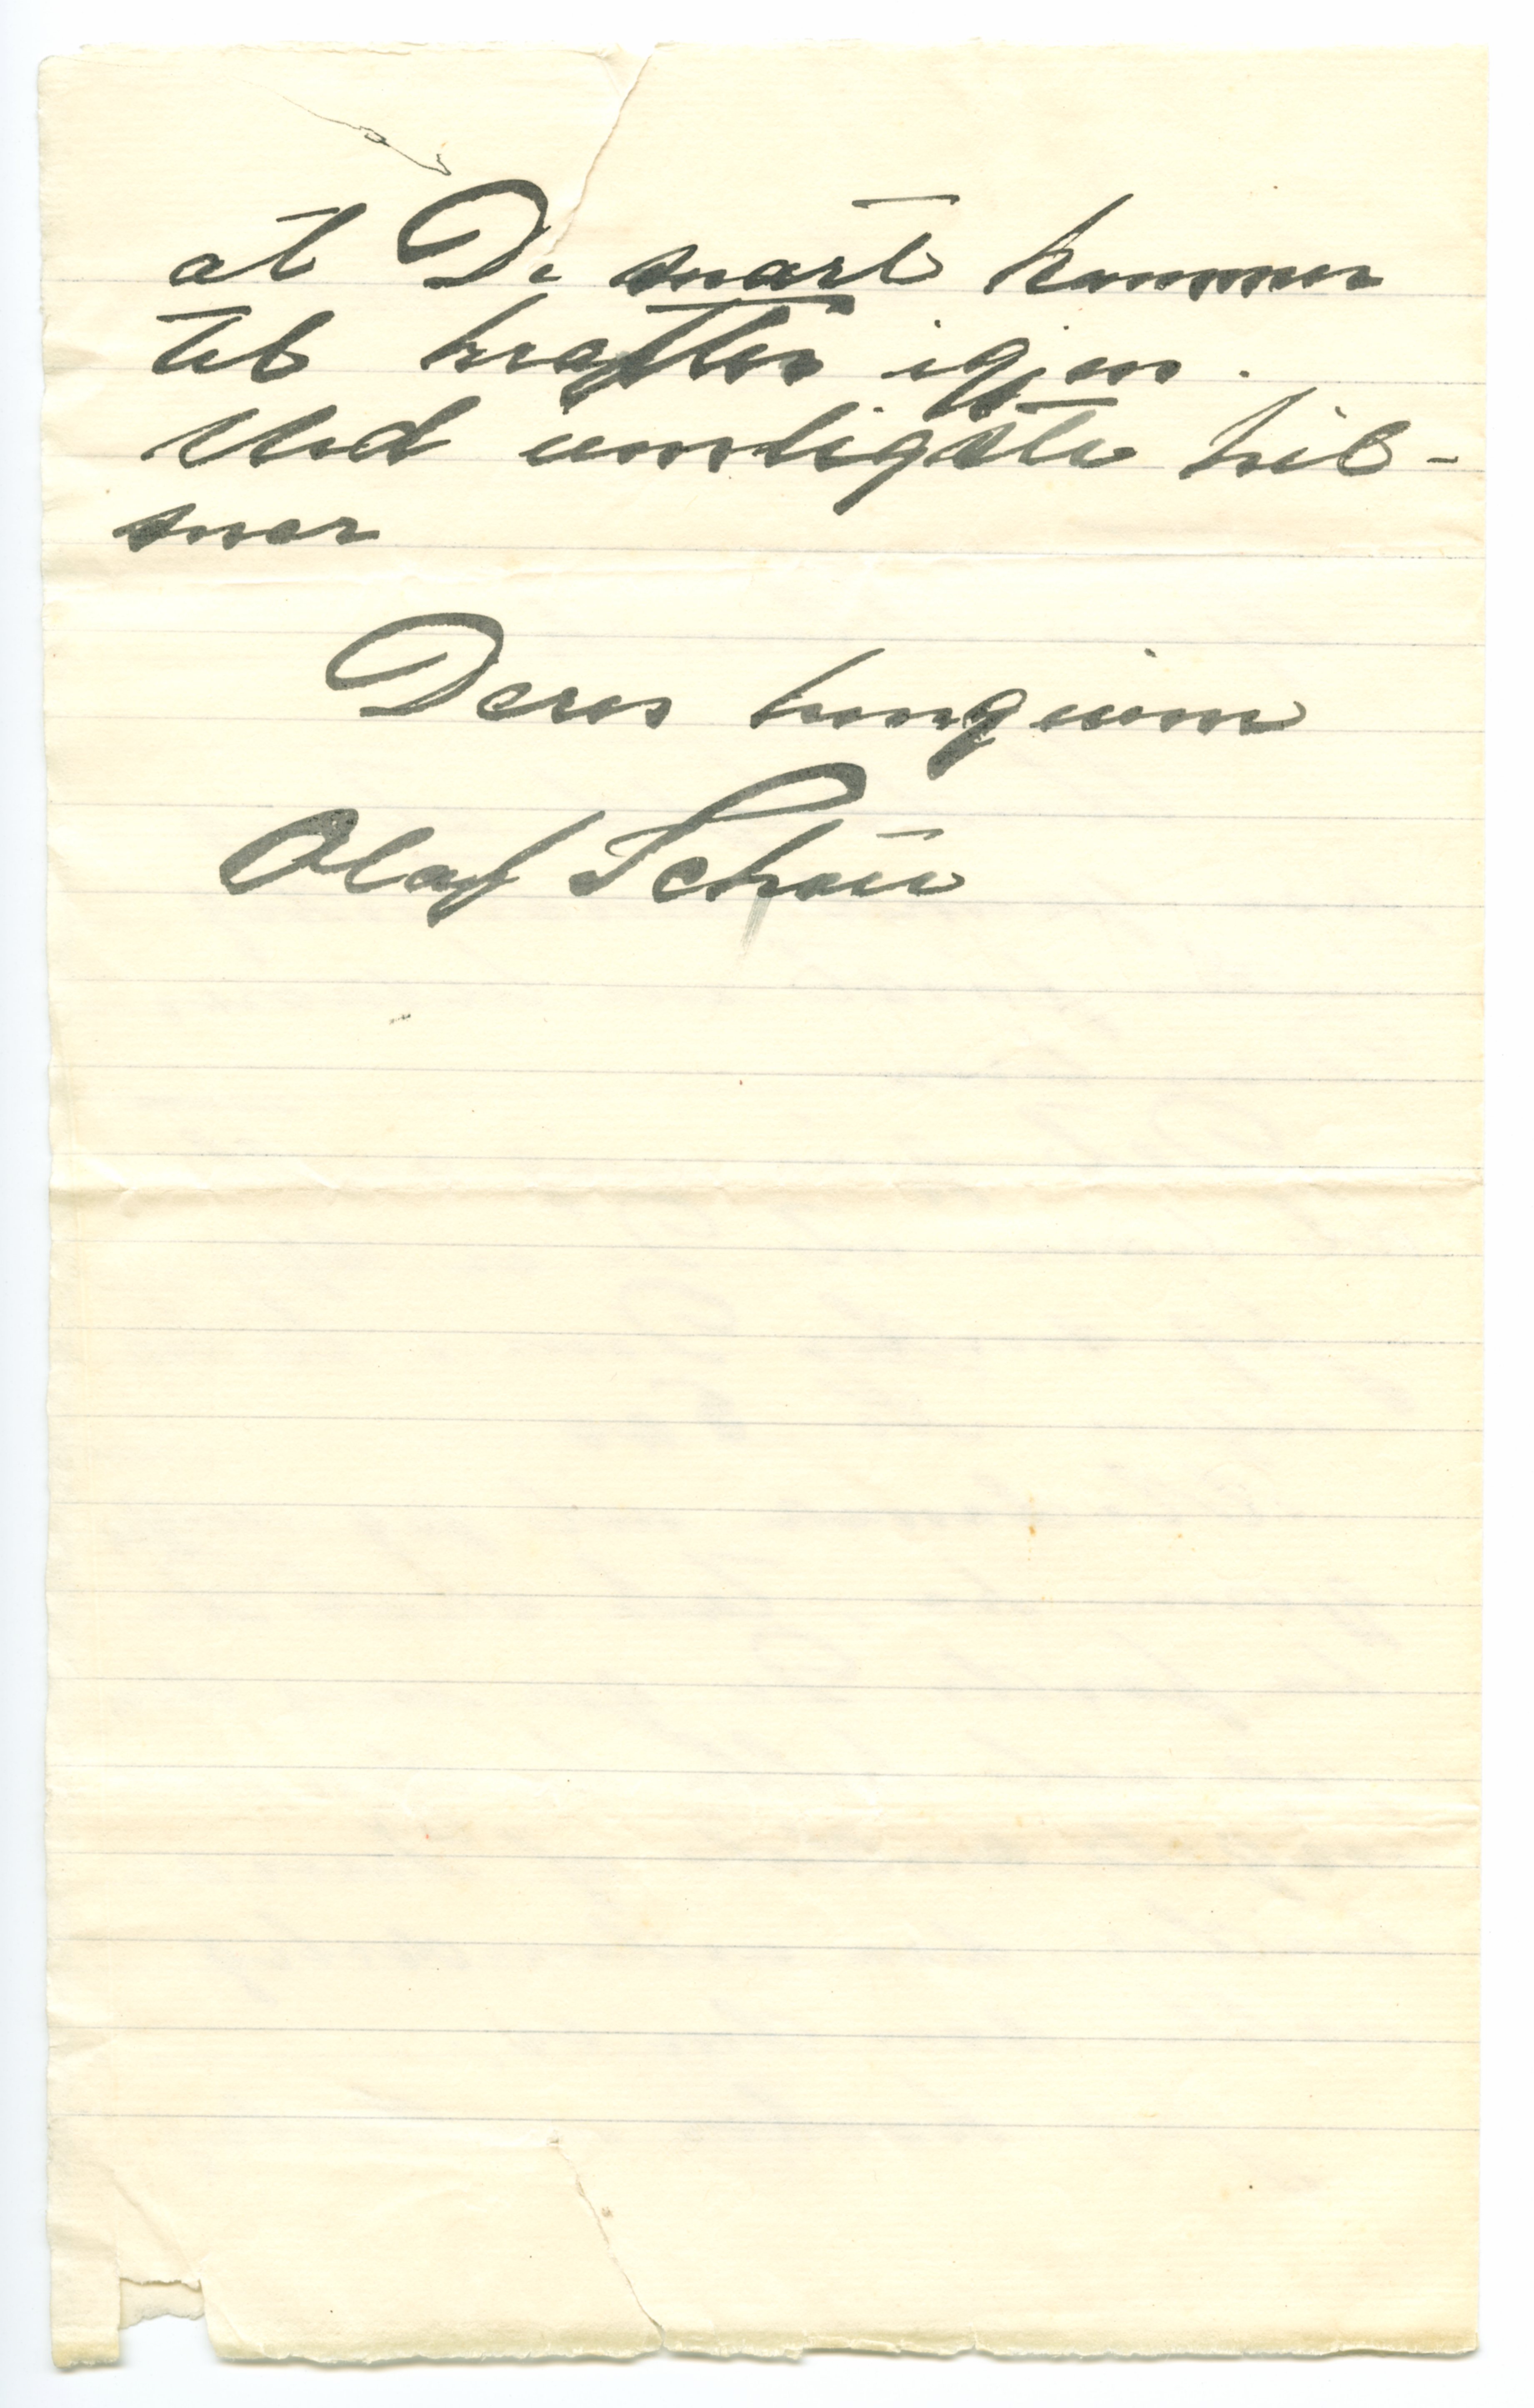 at De snart kommer
til kræfter igjen.
Med venligste hil-
sner
Deres hengivne
Olaf Schou